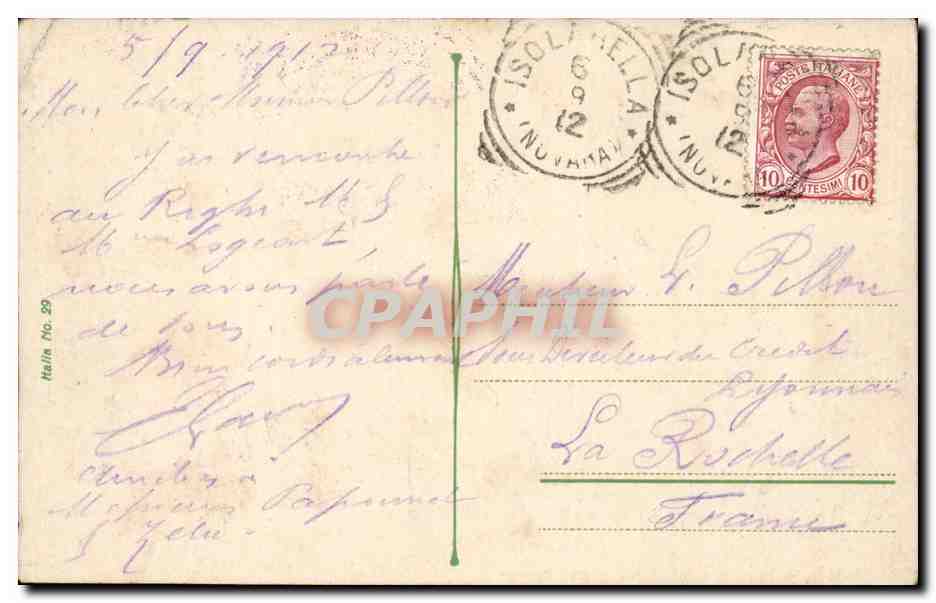 5/9 1912
Mon cher Monsieur Pillon
J'ai rencontré
au Righi M. &
M Logeart,
nous avons parlé
de vous.
Bien cordialement
amitiés à
Messieurs
&
ISOLA BELLA
6
9
12
* (NOVARA) *
ISOL
6
9
12
* (NOVA
POSTE ITALIANE
10 CENTESIMI 10
Monsieur L. Pillon
Sous Directeur du Credit
Lyonnais
La Rochelle
France
Italia No. 29
CPAPHIL